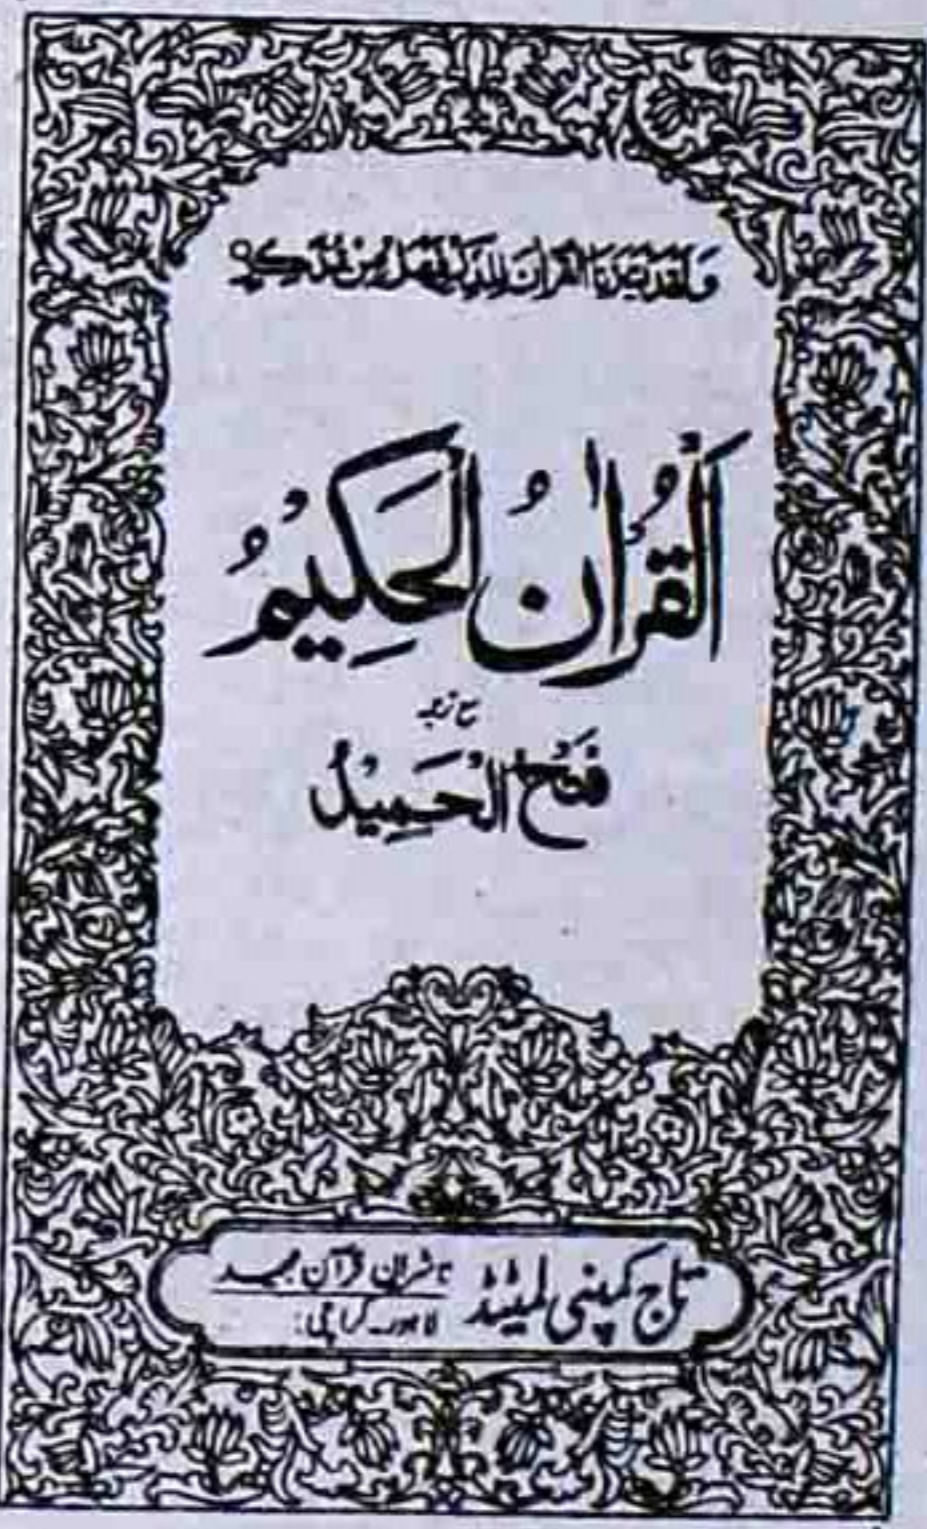 وَلَقَدْ يَسَّرْنَا الْقُرْآنَ لِلذِّكْرِ فَهَلْ مِنْ مُّدَّكِرٍ
اَلْقُرْاٰنُ الْحَكِیْمُ
مع ترجمہ
فَتْحُ الْحَمِیْدُ
تاج کمپنی لمیٹڈ
ناشران قرآن مجید
لاہور۔ کراچی: